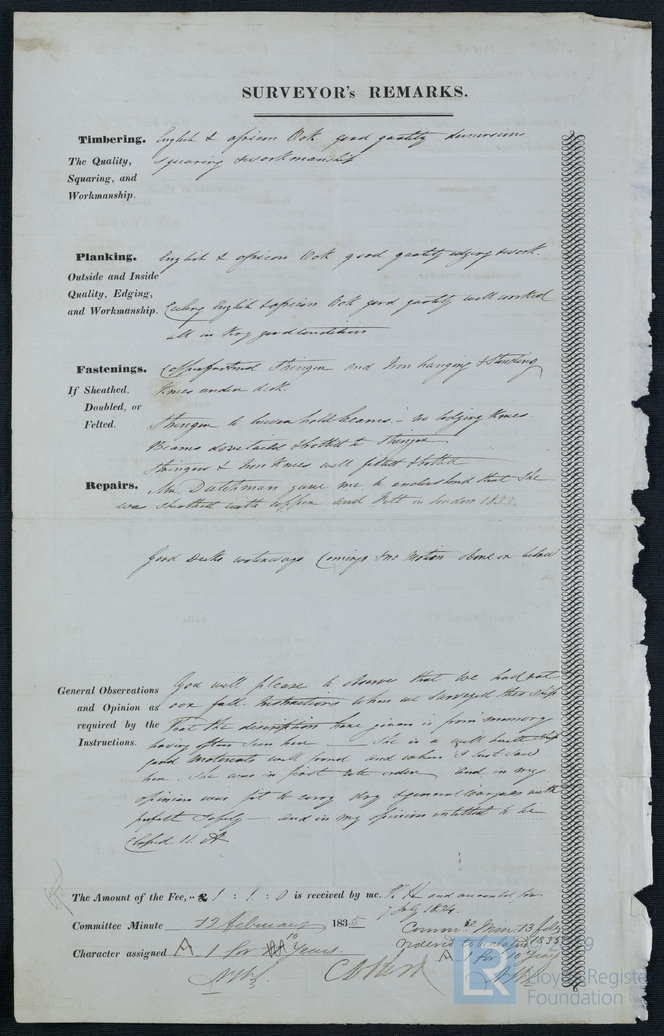 SURVEYOR's REMARKS.
Timbering. English & African Oak good quality dimensions
The Quality, Squaring, and Workmanship. squaring & workmanship
Planking. English & African Oak good quality edging & work.
Outside and Inside Quality, Edging, and Workmanship.
Ceiling English & African Oak good quality well worked
all in very good condition
Fastenings. Copperfastned Stringer and Iron hanging & Standing
If Sheathed, Doubled, or Felted. Knees under deck.
Stringer to lower hold beams. - no lodging Knees.
Beams dovetailed & bolted to Stringer
Stringers & Iron Knees well fitted & bolted
Repairs. Mr Dutchman gave me to understand that She
was Sheathed with Copper and Felt in London 1833.
Good Decks waterways Comings & no Motion above or below
General Observations and Opinion as required by the Instructions.
You will please to observe that we had not
our full Instructions when we Surveyed this Ship
That the description here given is from memory
having often Seen her She is a well built Ship
good Materials well found and when I last Saw
her She was in first rate order and in my
opinion was fit to carry dry & general cargoes with
perfect Safety and in my opinion entitled to be
Classed
The Amount of the Fee, £ 1 : 1 : 0 is received by me. and accounted for
July 1834.
Committee Minute 12 February 1835
13 July
1835
Character assigned A 1 for 10 Years.
A 1 for 10 Years
LR
Lloyd's Register
Foundation